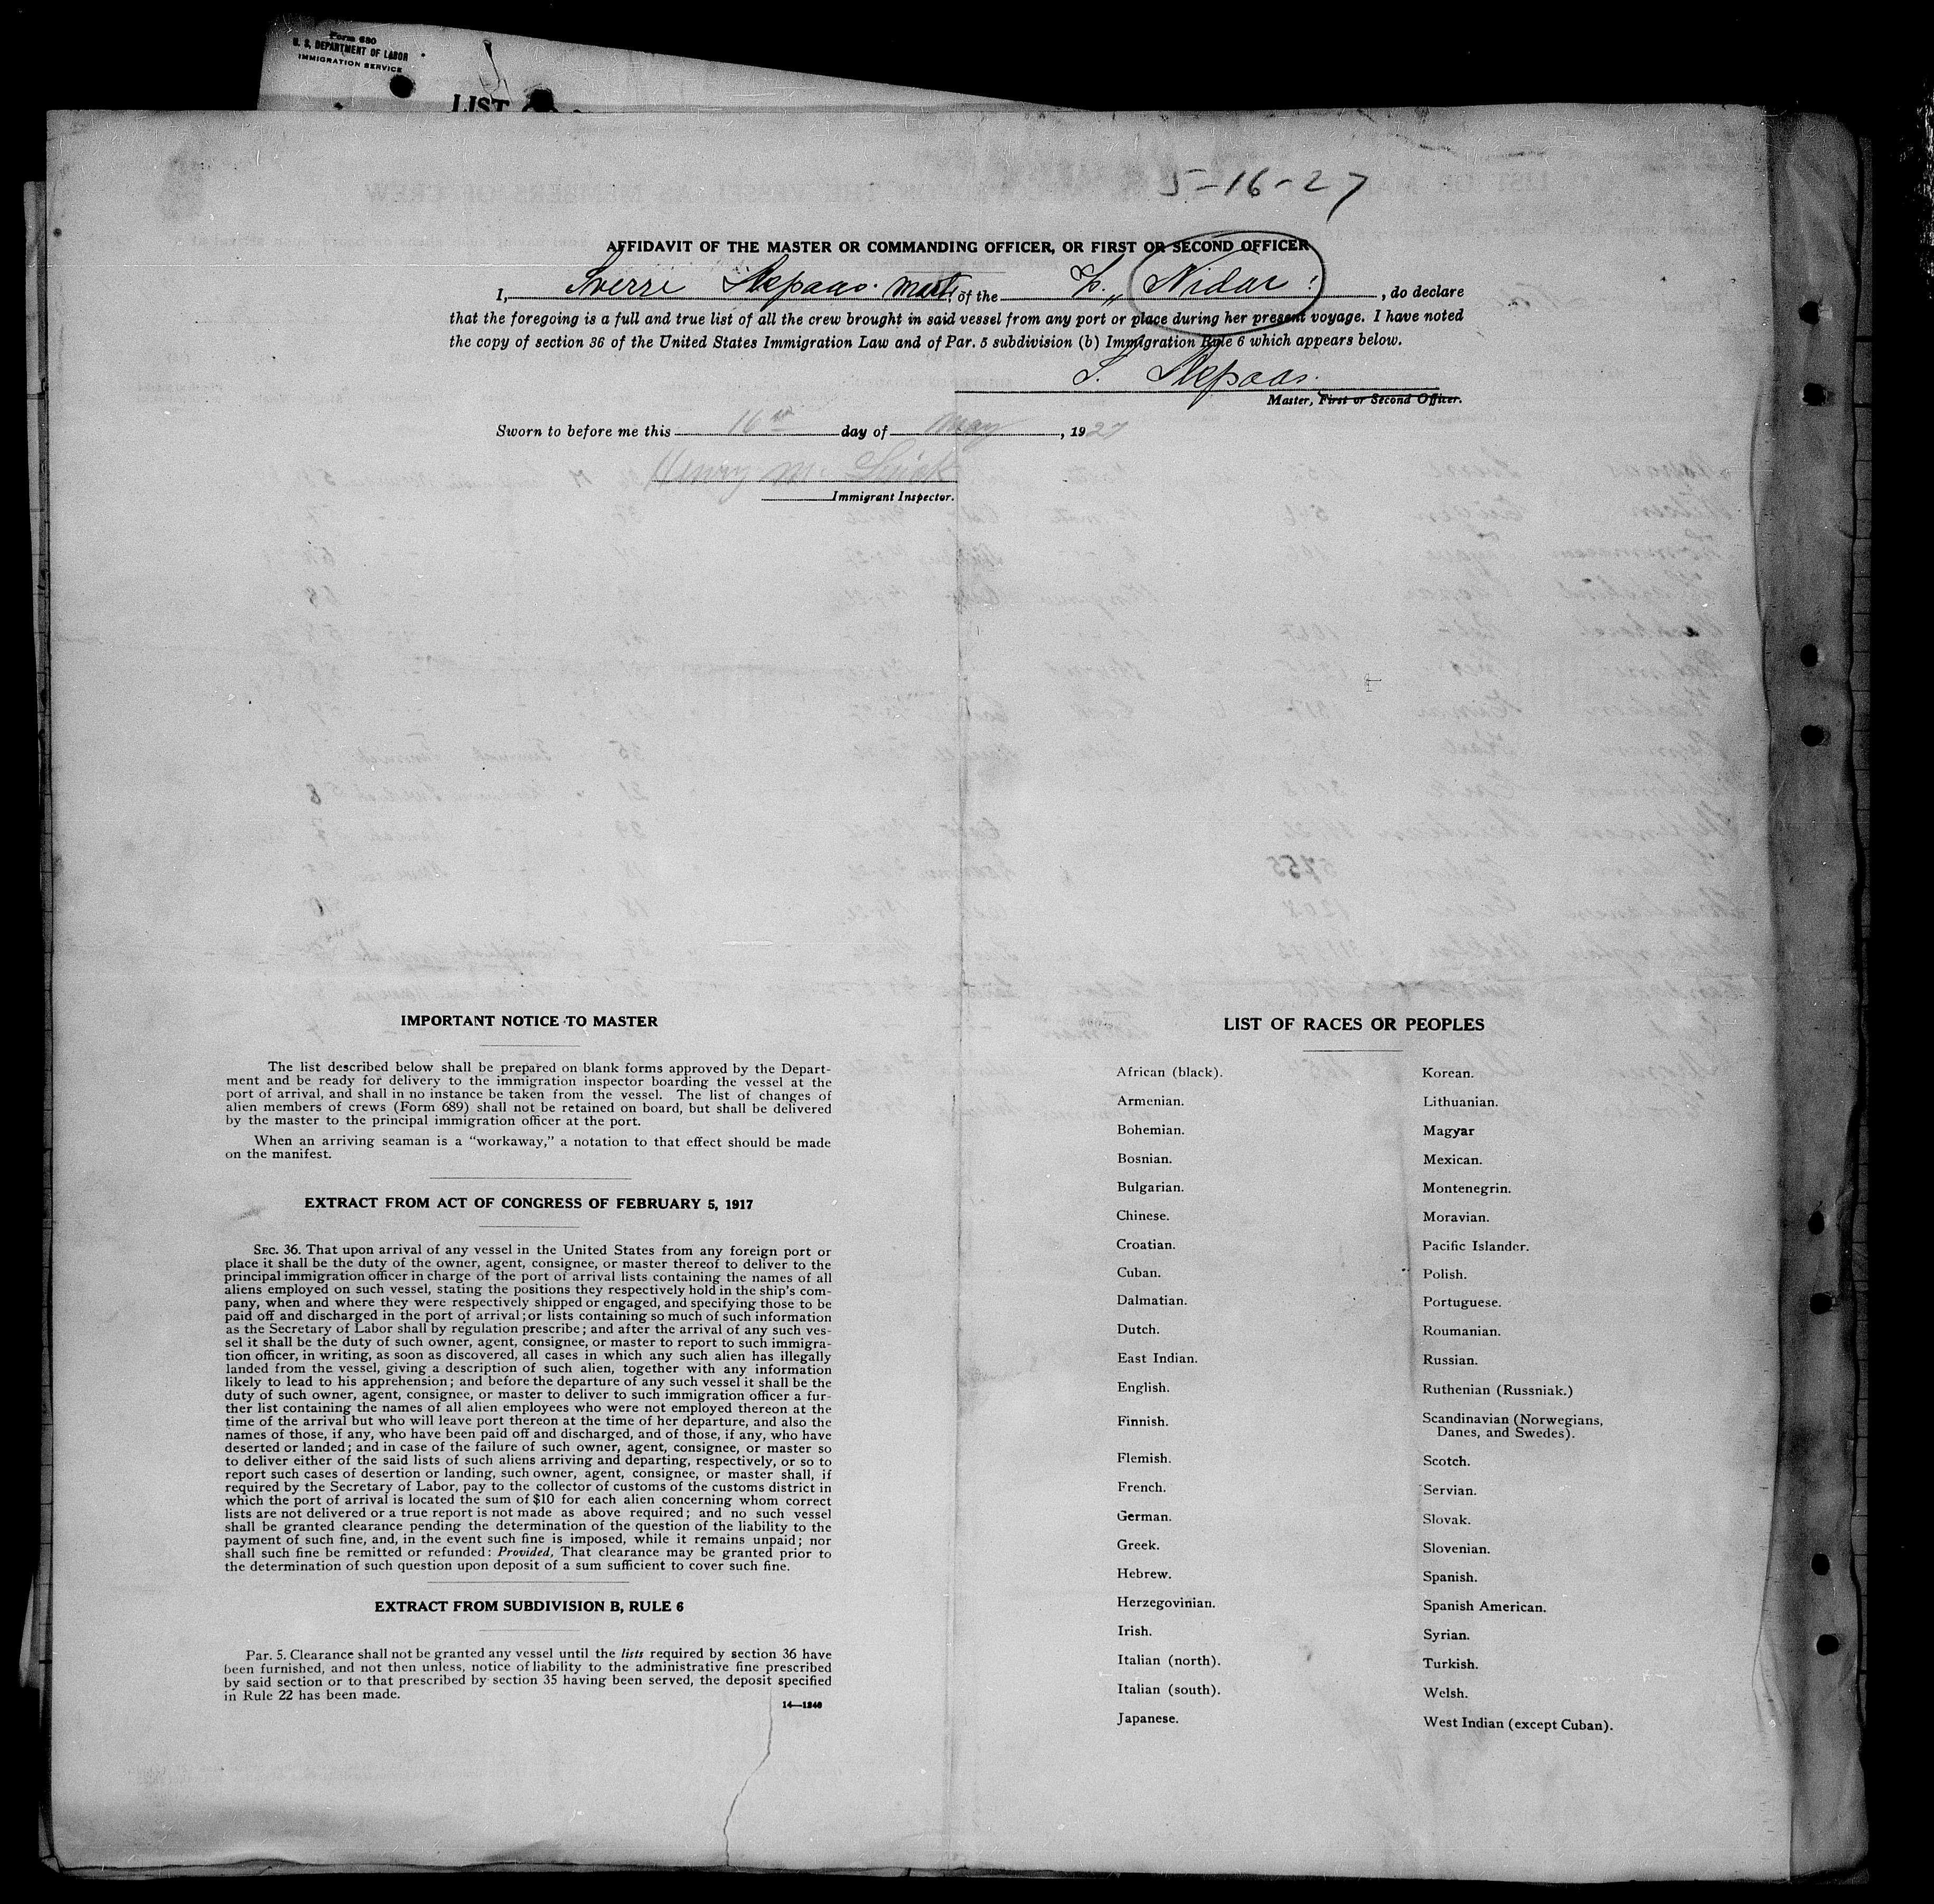 Form 680
U. S. DEPARTMENT OF LABOR
IMMIGRATION SERVICE
LIST
5-16-27
AFFIDAVIT OF THE MASTER OR COMMANDING OFFICER, OR FIRST OR SECOND OFFICER
I, Sverre mast. of the "Nidar", do declare
that the foregoing is a full and true list of all the crew brought in said vessel from any port or place during her present voyage. I have noted
the copy of section 36 of the United States Immigration Law and of Par. 5 subdivision (b) Immigration Rule 6 which appears below.
S.
Master, First or Second Officer.
Sworn to before me this 16th day of May, 1927
Henry M.
Immigrant Inspector.
IMPORTANT NOTICE TO MASTER
The list described below shall be prepared on blank forms approved by the Depart-
ment and be ready for delivery to the immigration inspector boarding the vessel at the
port of arrival, and shall in no instance be taken from the vessel. The list of changes of
alien members of crews (Form 689) shall not be retained on board, but shall be delivered
by the master to the principal immigration officer at the port.
When an arriving seaman is a "workaway," a notation to that effect should be made
on the manifest.
EXTRACT FROM ACT OF CONGRESS OF FEBRUARY 5, 1917
SEC. 36. That upon arrival of any vessel in the United States from any foreign port or
place it shall be the duty of the owner, agent, consignee, or master thereof to deliver to the
principal immigration officer in charge of the port of arrival lists containing the names of all
aliens employed on such vessel, stating the positions they respectively hold in the ship's com-
pany, when and where they were respectively shipped or engaged, and specifying those to be
paid off and discharged in the port of arrival; or lists containing so much of such information
as the Secretary of Labor shall by regulation prescribe; and after the arrival of any such ves-
sel it shall be the duty of such owner, agent, consignee, or master to report to such immigra-
tion officer, in writing, as soon as discovered, all cases in which any such alien has illegally
landed from the vessel, giving a description of such alien, together with any information
likely to lead to his apprehension; and before the departure of any such vessel it shall be the
duty of such owner, agent, consignee, or master to deliver to such immigration officer a fur-
ther list containing the names of all alien employees who were not employed thereon at the
time of the arrival but who will leave port thereon at the time of her departure, and also the
names of those, if any, who have been paid off and discharged, and of those, if any, who have
deserted or landed; and in case of the failure of such owner, agent, consignee, or master so
to deliver either of the said lists of such aliens arriving and departing, respectively, or so to
report such cases of desertion or landing, such owner, agent, consignee, or master shall, if
required by the Secretary of Labor, pay to the collector of customs of the customs district in
which the port of arrival is located the sum of $10 for each alien concerning whom correct
lists are not delivered or a true report is not made as above required; and no such vessel
shall be granted clearance pending the determination of the question of the liability to the
payment of such fine, and, in the event such fine is imposed, while it remains unpaid; nor
shall such fine be remitted or refunded: Provided, That clearance may be granted prior to
the determination of such question upon deposit of a sum sufficient to cover such fine.
EXTRACT FROM SUBDIVISION B, RULE 6
Par. 5. Clearance shall not be granted any vessel until the lists required by section 36 have
been furnished, and not then unless, notice of liability to the administrative fine prescribed
by said section or to that prescribed by section 35 having been served, the deposit specified
in Rule 22 has been made.
14—1240
LIST OF RACES OR PEOPLES
African (black).
Armenian.
Bohemian.
Bosnian.
Bulgarian.
Chinese.
Croatian.
Cuban.
Dalmatian.
Dutch.
East Indian.
English.
Finnish.
Flemish.
French.
German.
Greek.
Hebrew.
Herzegovinian.
Irish.
Italian (north).
Italian (south).
Japanese.
Korean.
Lithuanian.
Magyar
Mexican.
Montenegrin.
Moravian.
Pacific Islander.
Polish.
Portuguese.
Roumanian.
Russian.
Ruthenian (Russniak.)
Scandinavian (Norwegians,
Danes, and Swedes).
Scotch.
Servian.
Slovak.
Slovenian.
Spanish.
Spanish American.
Syrian.
Turkish.
Welsh.
West Indian (except Cuban).